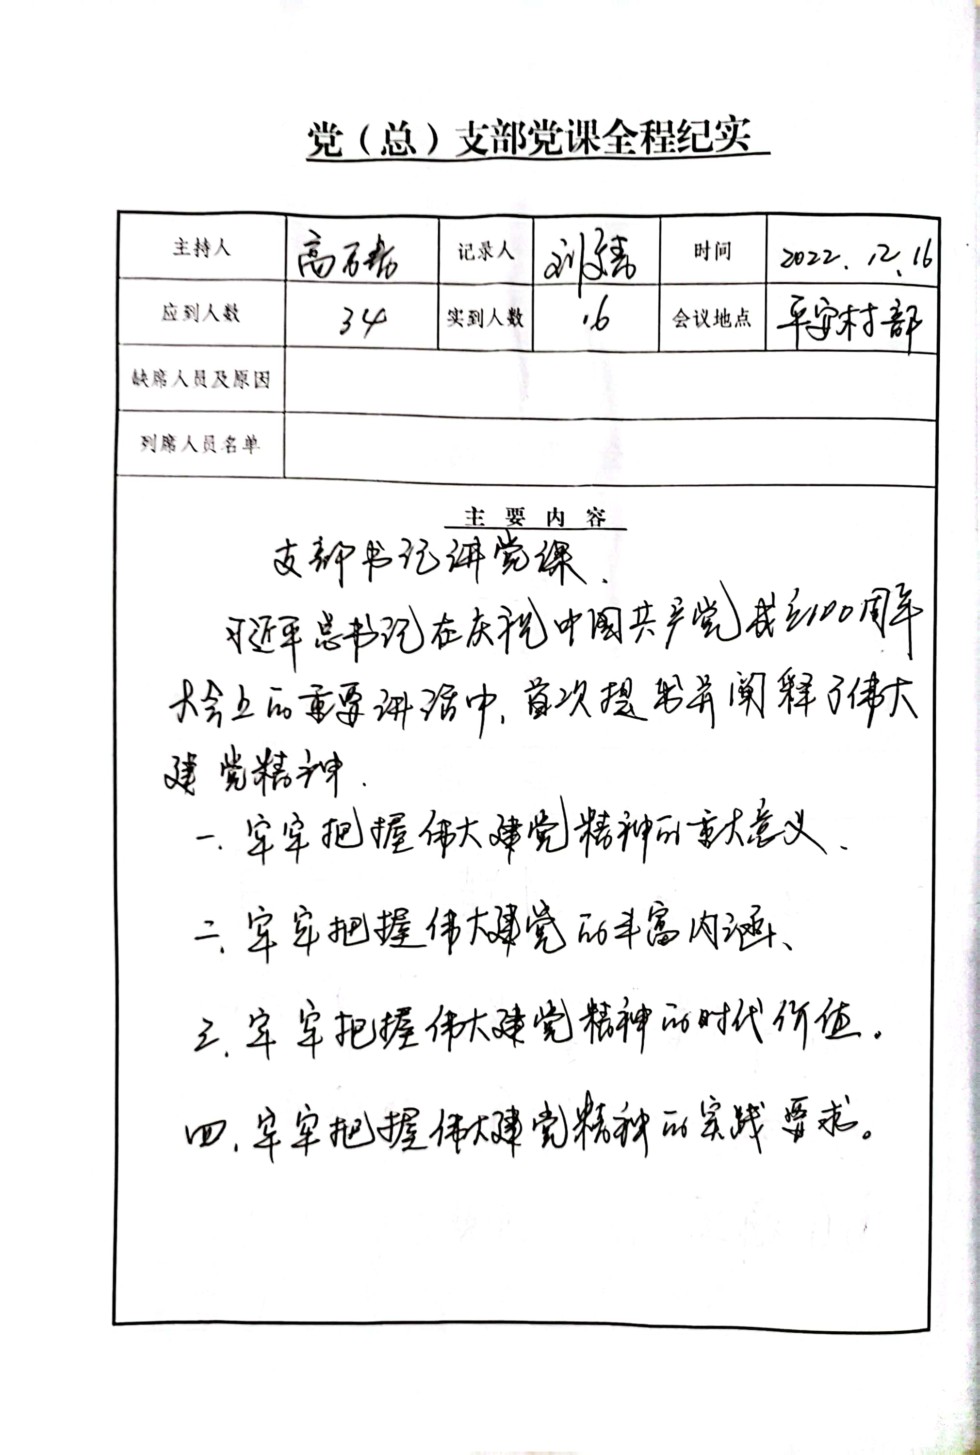 党（总）支部党课全程纪实
主持人 高 记录人 刘 时间 2022.12.16
应到人数 34 实到人数 16 会议地点 平安村部
缺席人员及原因
列席人员名单
主要内容
支部书记讲党课、
习近平总书记在庆祝中国共产党成立100周年
大会上的重要讲话中,首次提出并阐释了伟大
建党精神.
一.牢牢把握伟大建党精神的重大意义、
二、牢牢把握伟大建党的丰富内涵、
三、牢牢把握伟大建党精神的时代价值。
四、牢牢把握伟大建党精神的实践要求。